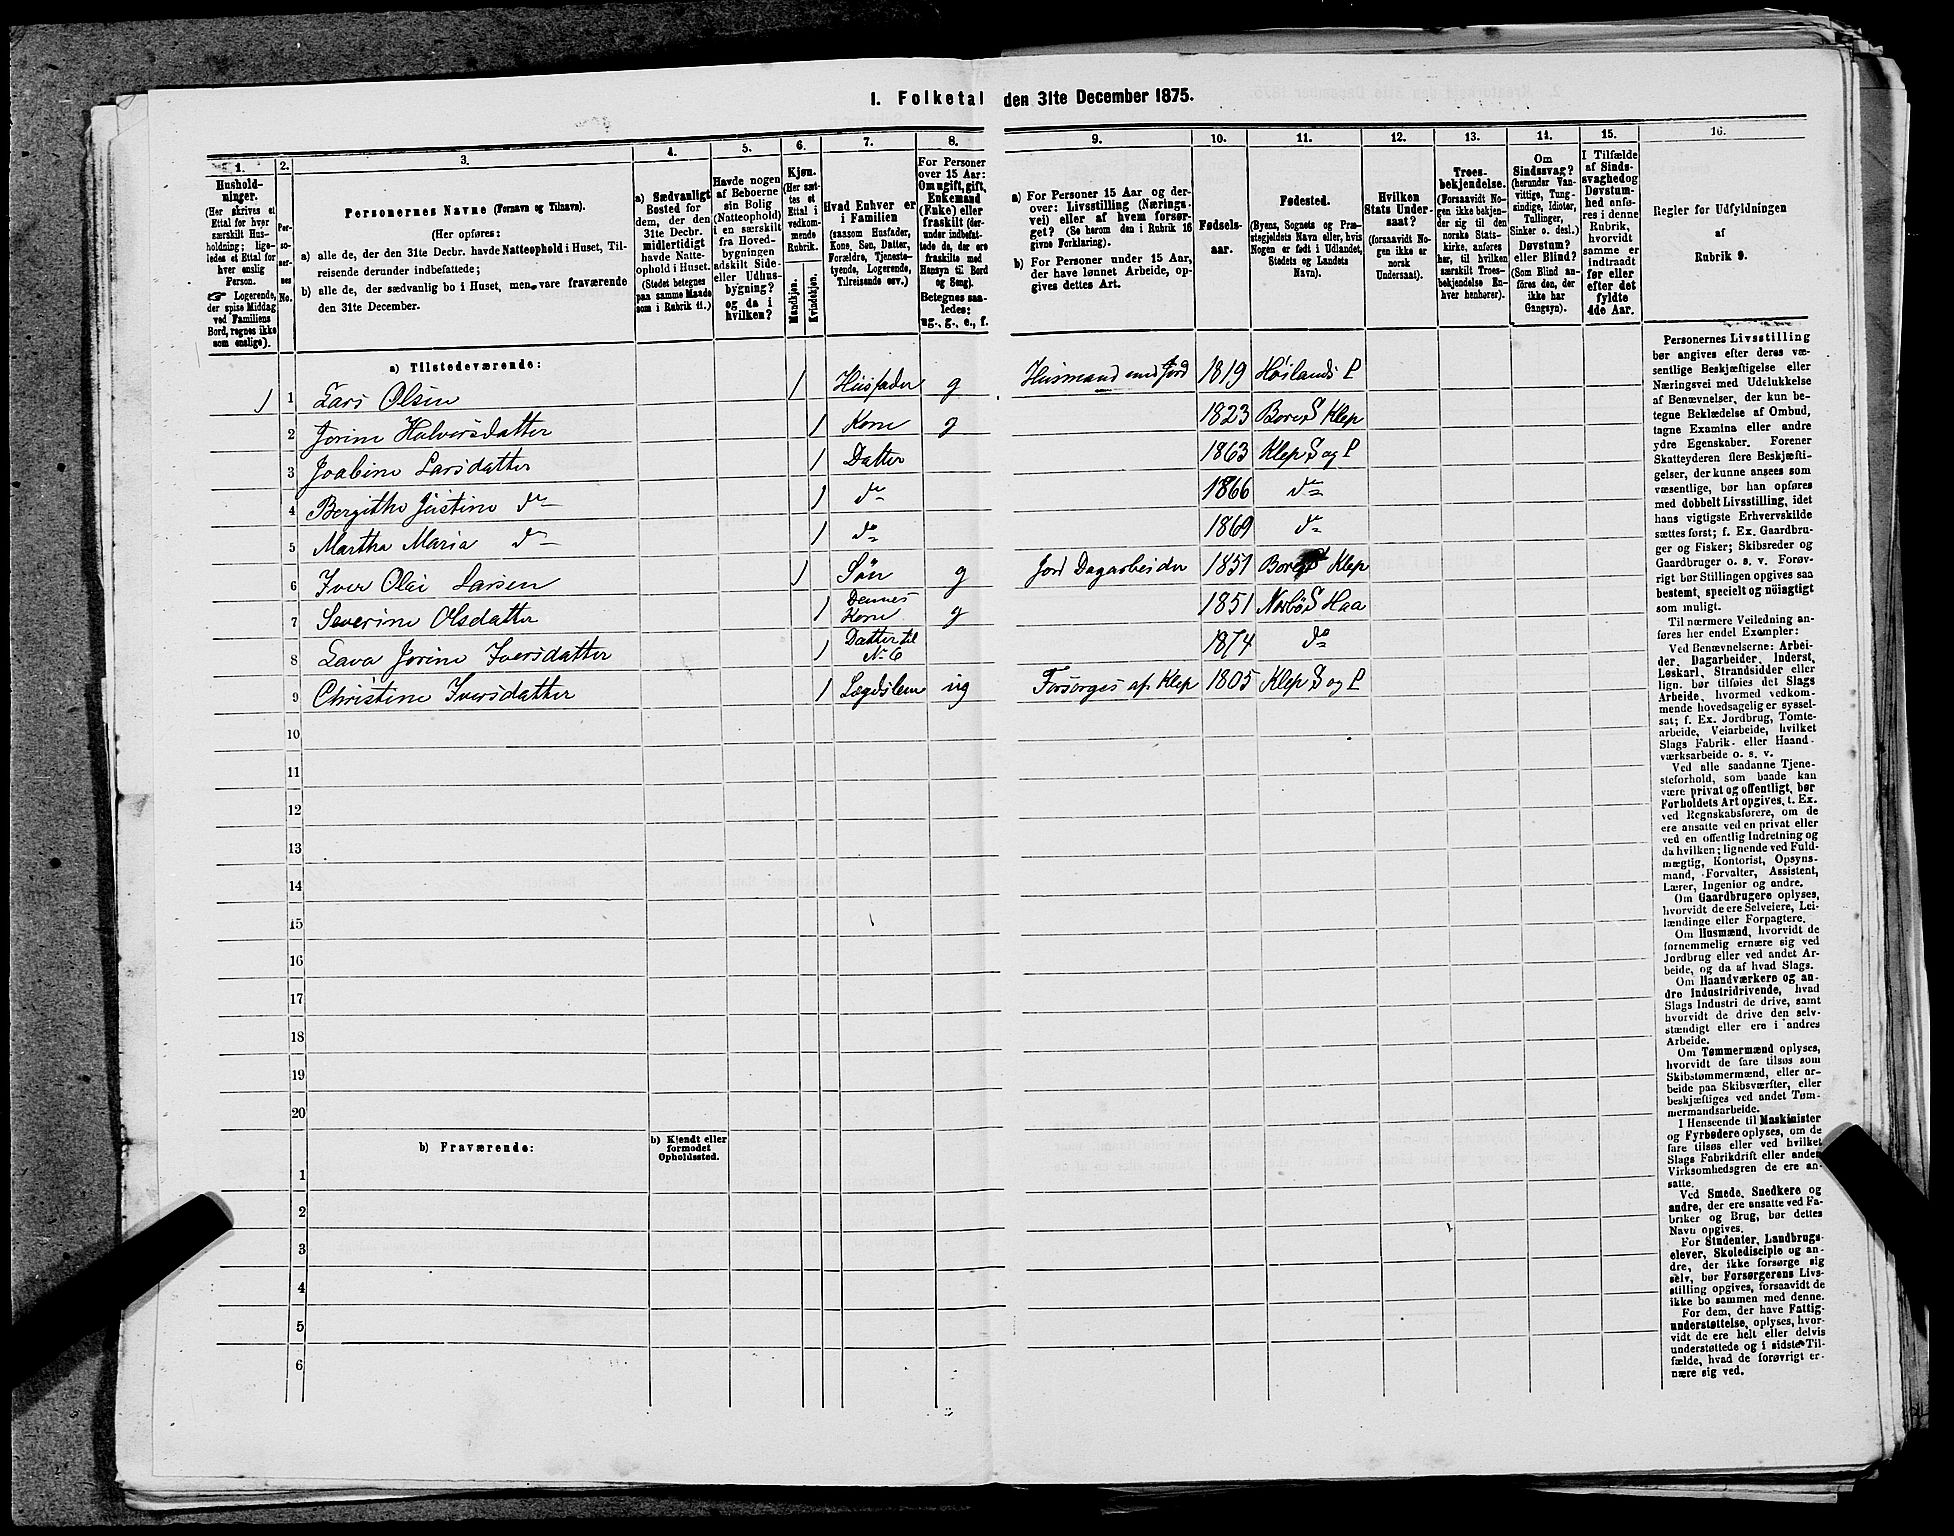 1. Folketal den 31te December 1875.
1.
Hushold-
ninger.
(Her skrives et
Ettal for hver
særskilt Hus-
holdning; lige-
ledes et Ettal for
hver enslig
Person.
☞ Logerende,
der spise Middag
ved Familiens
Bord, regnes ikke
som enslige).
2.
Per-
so-
ner-
nes
No.
3.
Personernes Navne (Fornavn og Tilnavn).
(Her opføres:
a) alle de, der den 31te Decbr. havde Natteophold i Huset, Til-
reisende derunder indbefattede;
b) alle de, der sædvanlig bo i Huset, men vare fraværende
den 31te December.
4.
a) Sædvanligt
Bosted for
dem, der den
31te Decbr.
midlertidigt
havde Natte-
ophold i Huset.
(Stedet betegnes
paa samme Maade
som i Rubrik 11.)
5.
Havde nogen
af Beboerne
sin Bolig
(Natteophold)
i en særskilt
fra Hoved-
bygningen
adskilt Side-
eller Udhus-
bygning?
og da i
hvilken?
6.
Kjøn.
(Her sæt-
tes et
Ettal i
vedkom-
mende
Rubrik.
Mandkjøn.
Kvindekjøn.
7.
Hvad Enhver er
i Familien
(saasom Husfader,
Kone, Søn, Datter,
Forældre, Tjeneste-
tyende, Logerende,
Tilreisende osv.)
8.
For Personer
over 15 Aar:
Om ugift, gift,
Enkemand
(Enke) eller
fraskilt (her-
under indbefat-
tede de, der ere
fraskilte med
Hensyn til Bord
og Seng).
Betegnes saa-
ledes:
ug., g., e., f.
9.
a) For Personer 15 Aar og der-
over: Livsstilling (Nærings-
vei) eller af hvem forsør-
get? (Se herom den i Rubrik 16
givne Forklaring).
b) For Personer under 15 Aar,
der have lønnet Arbeide, op-
gives dettes Art.
10.
Fødsels-
aar.
11.
Fødested.
(Byens, Sognets og Præ-
stegjeldets Navn eller, hvis
Nogen er født i Udlandet,
Stedets og Landets
Navn).
12.
Hvilken
Stats Under-
saat?
(forsaavidt No-
gen ikke er
norsk
Undersaat).
13.
Troes-
bekjendelse.
(Forsaavidt No-
gen ikke bekjen-
der sig til den
norske Stats-
kirke, anføres
her, til hvilken
særskilt Troes-
bekjendelse En-
hver henhører).
14.
Om
Sindssvag?
(herunder Van-
vittige, Tung-
sindige, Idioter,
Tullinger,
Sinker o. desl.)
Døvstum?
eller Blind?
(Som Blind an-
føres den, der
ikke har
Gangsyn).
15.
I Tilfælde
af Sinds-
svaghed og
Døvstum-
hed anfø-
res i denne
Rubrik,
hvorvidt
samme er
indtraadt
før eller
efter det
fyldte
4de Aar.
16.
Regler for Udfyldningen
af
Rubrik 9.
a) Tilstedeværende:
1 1 Lars Olsen 1 Husfader g Husmand med Jord 1819 Høilands P
2 Jorine Halversdatter 1 Kone g 1823 Bore S Klep
3 Joabine Larsdatter 1 Datter 1863 Klep S og P
4 Bergitha Justine do 1 do 1866 do
5 Martha Maria do 1 do 1869 do
6 Iver Olai Larsen 1 Søn g Jord Dagarbeider 1851 Bore S Klep
7 Severine Olsdatter 1 Dennes Kone g 1851 Nærbø S Haa
8 Lava Jorine Iversdatter 1 Datter til No 6 1874 do
9 Christine Iversdatter 1 Lægdslem ug Forsørges af Klep 1805 Klep S og P
10
11
12
13
14
15
16
17
18
19
20
b) Fraværende:
b) Kjendt eller
formodet
Opholdssted.
1
2
3
4
5
6
Personernes Livsstilling
bør angives efter deres væ-
sentlige Beskjæftigelse eller
Næringsvei med Udelukkelse
af Benævnelser, der kun be-
tegne Beklædelse af Ombud,
tagne Examina eller andre
ydre Egenskaber. Forener
Skatteyderen flere Beskjæfti-
gelser, der kunne ansees som
væsentlige, bør han opføres
med dobbelt Livsstilling, idet
hans vigtigste Erhvervskilde
sættes først; f. Ex. Gaardbru-
ger og Fisker; Skibsreder og
Gaardbruger o. s. v. Forøv-
rigt bør Stillingen opgives saa
bestemt, specielt og nöiagtigt
som muligt.
Til nærmere Veiledning an-
føres her endel Exempler:
Ved Benævnelserne: Arbei-
der, Dagarbeider, Inderst,
Løskarl, Strandsidder eller
lign. bør tilføies det Slags
Arbeide, hvormed vedkom-
mende hovedsagelig er syssel-
sat; f. Ex. Jordbrug, Tomte-
arbeide, Veiarbeide, hvilket
Slags Fabrik- eller Haand-
værksarbeide o. s. v.
Ved alle saadanne Tjene-
steforhold, som baade kan
være privat og offentligt, bør
Forholdets Art opgives, t. Ex.
ved Regnskabsførere, om de
ere ansatte ved en privat eller
ved en offentlig Indretning og
da hvilken; lignende ved Fuld-
mægtig, Kontorist, Opsyns-
mand, Forvalter, Assistent,
Lærer, Ingeniør og andre.
Om Gaardbrugere oplyses,
hvorvidt de ere Selveiere, Lei-
lændinge eller Forpagtere.
Om Husmænd, hvorvidt de
fornemmelig ernære sig ved
Jordbrug eller ved andet Ar-
beide, og da af hvad Slags.
Om Haandværkere og an-
dre Industridrivende, hvad
Slags Industri de drive, samt
hvorvidt de drive den selv-
stændigt eller ere i andres
Arbeide.
Om Tømmermænd oplyses,
hvorvidt de fare tilsøs som
Skibstømmermænd, eller ar-
beide paa Skibsværfter, eller
beskjæftiges ved andet Tøm-
mermandsarbeide.
I Henseende til Maskinister
og Fyrbødere oplyses, om de
fare tilsøs eller ved hvilket
Slags Fabrikdrift eller anden
Virksomhedsgren de ere an-
satte.
Ved Smede, Snedkere og
andre, der ere ansatte ved Fa-
briker og Brug, bør dettes
Navn opgives.
For Studenter, Landbrugs-
elever, Skoledisciple og an-
dre, der ikke forsørge sig
selv, bør Forsørgerens Livs-
stilling opgives, forsaavidt de
ikke bo sammen med denne.
For dem, der have Fattig-
understøttelse, oplyses, hvor-
vidt de ere helt eller delvis
understøttede og i sidste Til-
fælde, hvad de forøvrigt er-
nære sig ved.